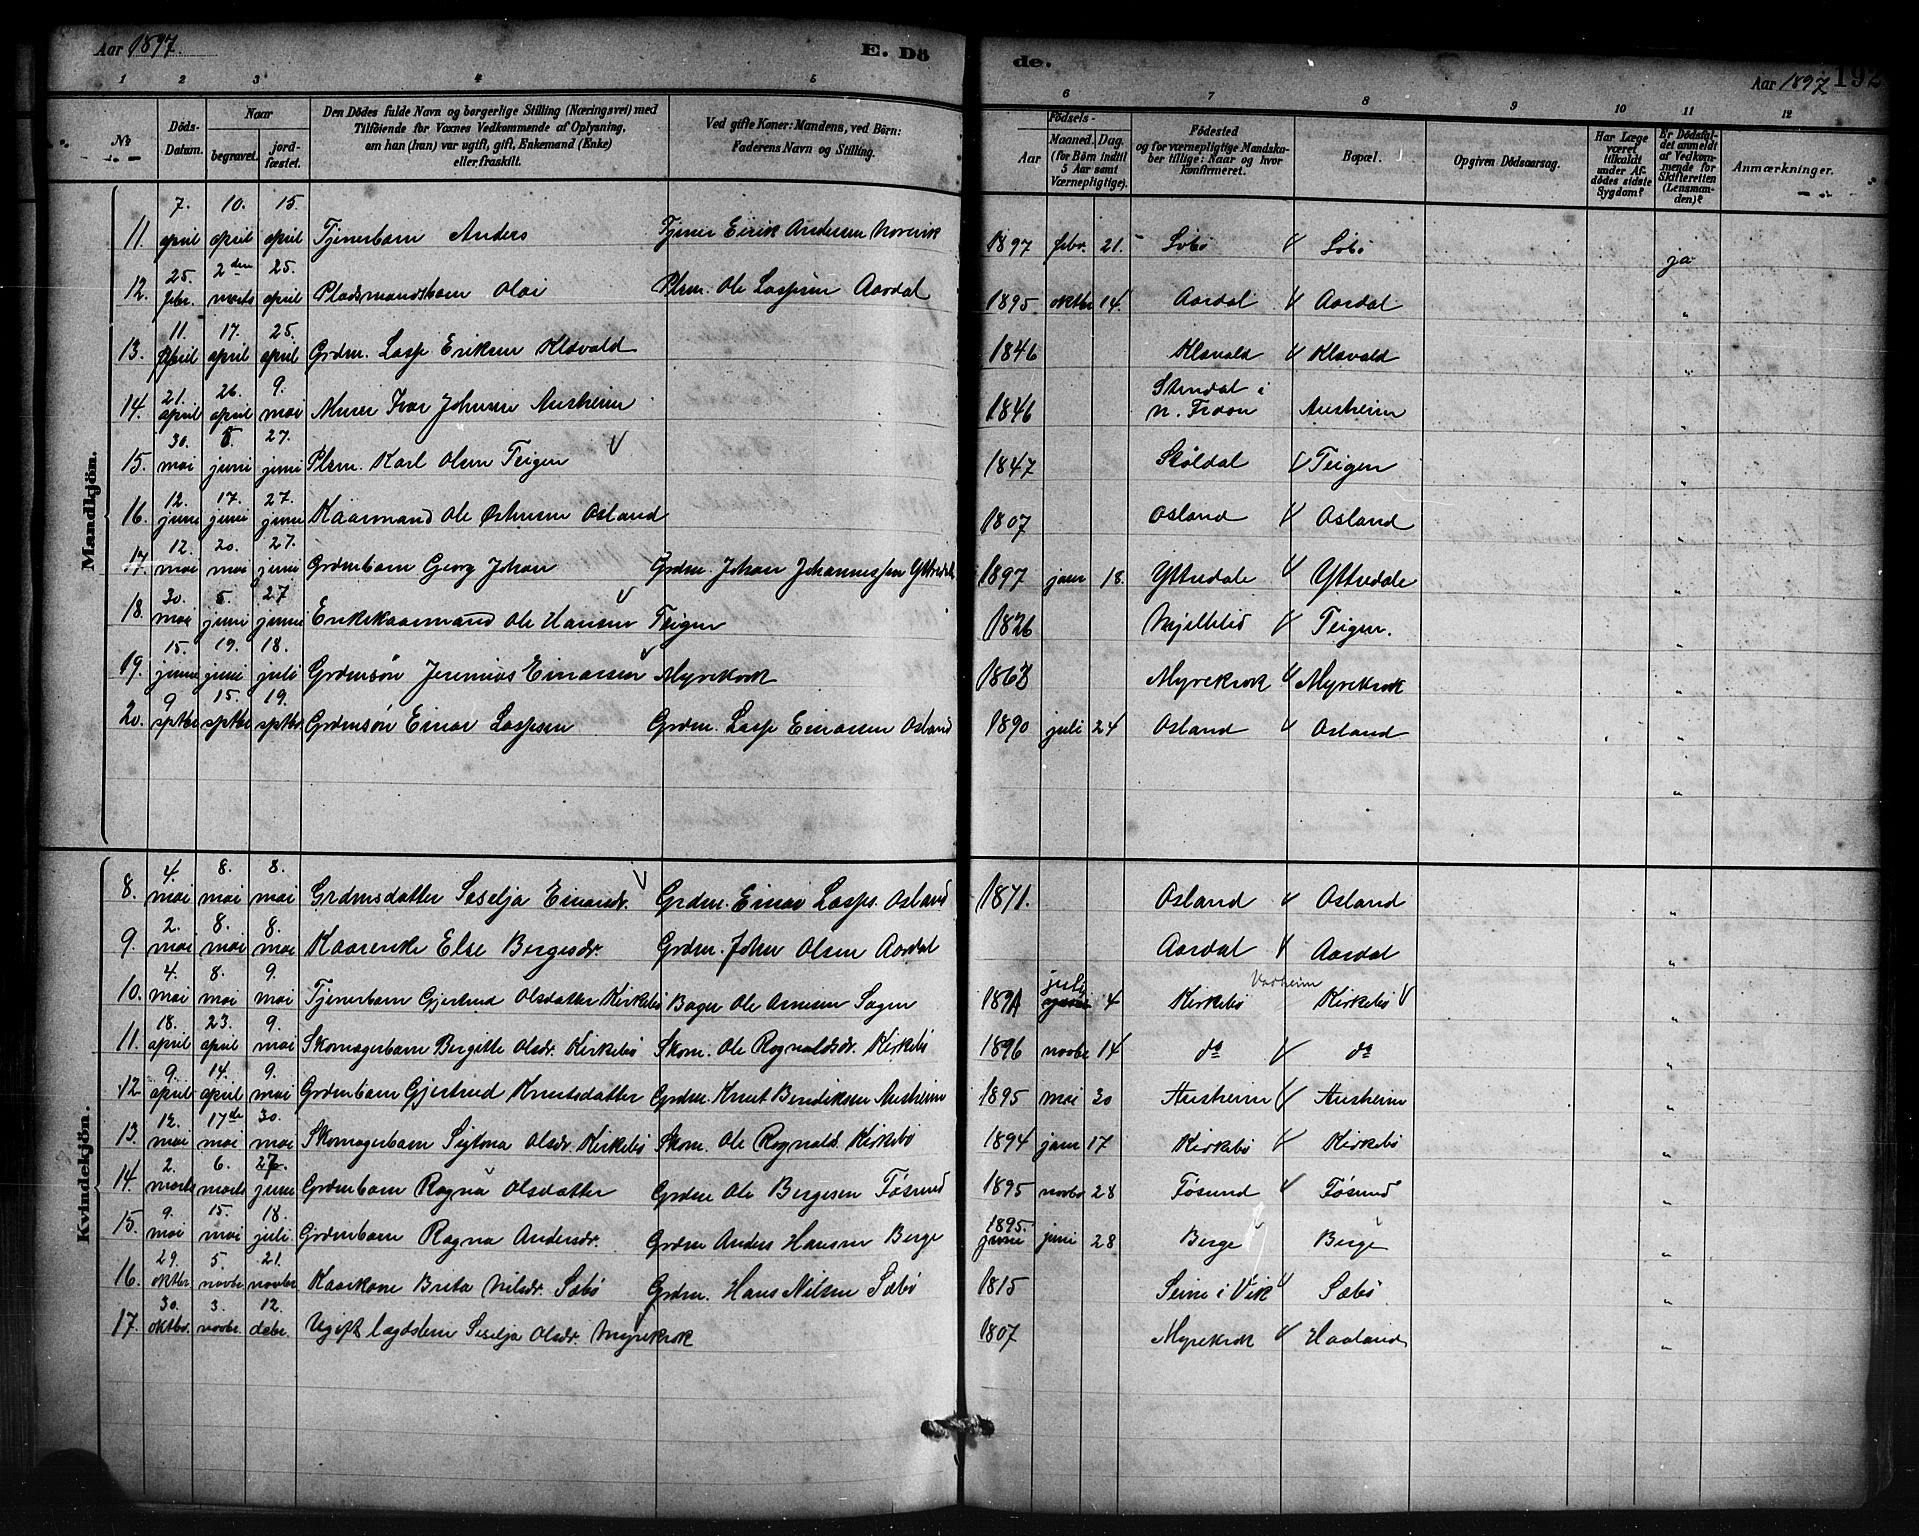 Aar 1897. E. Dö
de. Aar 1897 192
1 2 3 4 5
6 7 8 9 10 11 12
No
Döds-Datum.
Naar
begravet. jordfæstet.
Den Dödes fulde Navn og borgerlige Stilling (Næringsvei) med
Tilföiende for Voxnes Vedkommende af Oplysning,
om han (hun) var ugift, gift, Enkemand (Enke)
eller fraskilt.
Ved gifte Koner: Mandens, ved Börn:
Faderens Navn og Stilling.
Födsels-
Aar Maaned. Dag.
(for Börn indtil 5 Aar samt Værnepligtige).
Födested
og for værnepligtige Mandskaber tillige: Naar og hvor konfirmeret.
Bopæl.
Opgiven Dödsaarsag.
Har Læge været tilkaldt under Afdödes sidste Sygdom?
Er Dödsfaldet anmeldt af Vedkommende for Skifteretten (Lensmanden)?
Anmærkninger.
Mandkjön.
11. 7. april 10. april 15. april Tjenerbarn Anders Tjener Eirik Andersen 1897 febr. 21. ja
12. 25. febr. 2den marts 25. april Pladsmandsbarn Olai Plsm. Ole Laspsen Aardal 1895 oktbr 14 Aardal Aardal "
13. 11. april 17. april 25. april Grdm. Lasp Eriksen Klævold 1846 Klævold Klævold "
14. 21. april 26. april 9. mai Murer Ivar Johnsen Austreim 1846 n. Fron Austreim "
15. 30. mai 5. juni 27. juni Plsm. Karl Olsen Teigen 1847 Teigen "
16. 12. juni 17. juni 27. juni Kaarmand Ole Østensen Osland 1807 Osland Osland "
17. 12. mai 20. mai 27. juni Grdmbarn Georg Johan Grdm. Johan Johannessen Yttredale 1897 janr 18. Yttredale Yttredale "
18. 30. mai 5. juni 27 juni Enkekaarmand Ole Hansen Teigen 1826 Teigen. "
19. 15. juni 19. juni 18. juli Grdmsøn Jeremias Einarsen Myrekrok 1863 Myrekrok Myrekrok "
20. 9 sptbr 15. sptbr 19. sptbr Grdmsøn Einar Laspsen Grdm. Lasp Einarsen Osland 1890 juli 24 Osland Osland "
Kvindekjön.
8. 4. mai 8. mai 8. mai Grdmsdatter Seselja Einarsdr. Grdm. Einar Lasps. Osland 1871. Osland Osland "
9. 2. mai 8. mai 8. mai Kaarenke Else Bergesdr. Grdm. Johan Olsen Aardal Aardal Aardal "
10. 4. mai 8. mai 9. mai Tjenerbarn Gjertrud Olsdatter Kirkebø Bager Ole Arnesen Sagen 1894 juli 4 Kirkebø Kirkebø "
11. 18. april 23. april 9. mai Skomagerbarn Bergitte Olsdr. Kirkebø Skom. Ole Rognaldsdr. Kirkebø 1896 novbr 14 do do "
12. 9. april 14. april 9. mai Grdmbarn Gjertrud Knutsdatter Grdm. Knut Bendiksen Austreim 1895 mai 30 Austreim Austreim "
13. 12. mai 17de mai 30. mai Skomagerbarn Olsdr. Kirkebø Skom. Ole Rognald. Kirkebø 1894 janr 17 Kirkebø Kirkebø "
14. 2. marts 6. marts 27. juni Grdmbarn Ragna Olsdatter Grdm Ole Bergesen Tøsund 1895 novbr 28 Tøsund Tøsund "
15. 9. mai 15. mai 18. juli Grdmbarn Ragna Andersdr. Grdm Anders Hansen Berge 1895. juni 28 Berge Berge "
16. 29. oktbr. 5. novbr. 21. novbr Kaarkone Brita Nilsdr. Sæbø Grdm. Hans Nilsen Sæbø 1815 Seim i Vik Sæbø "
17. 30. oktbr. 3. novbr. 12. debr. Ugift lægdslem Seselja Olsdr. Myrekrok 1807 Myrekrok Haaland "